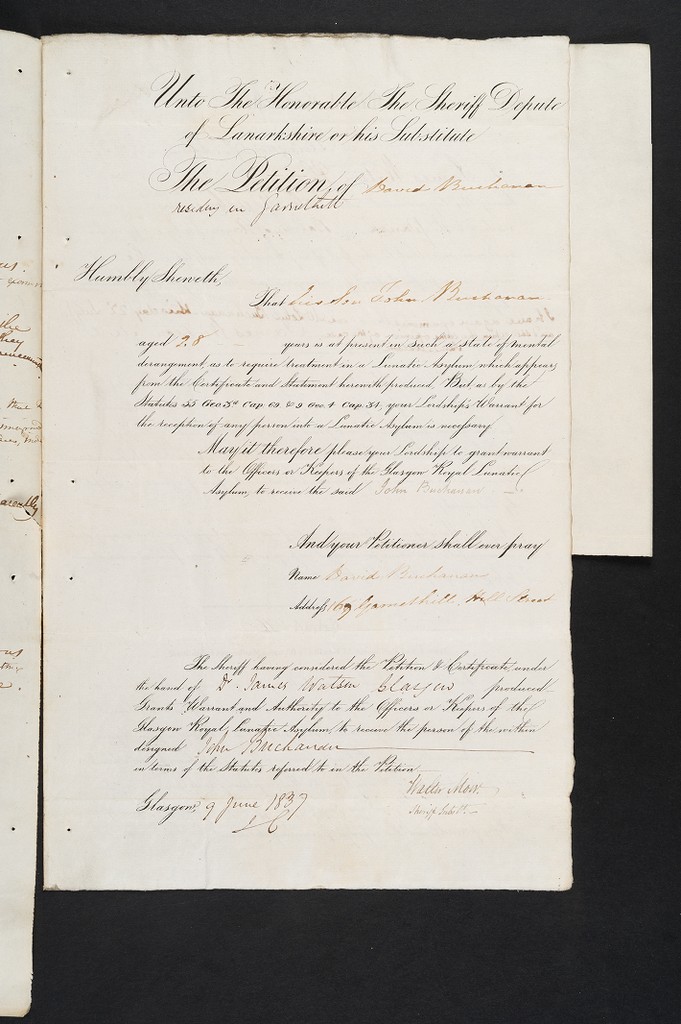 Unto The Honorable The Sheriff Depute
of Lanarkshire or his Substitute
The Petition, of David Buchanan
residing in Garnethill
Humbly Sheweth,
That his Son John Buchanan
aged 28 years is at present in such a state of mental
derangement, as to require treatment in a Lunatic Asylum which appears
from the Certificate and Statement herewith produced. But as by the
Statutes 55 Geo. 3d Cap. 69. & 9 Geo. 4 Cap. 34, your Lordship's Warrant for
the reception of any person into a Lunatic Asylum is necessary.
May it therefore please your Lordship to grant warrant
to the Officers or Keepers of the Glasgow Royal Lunatic
Asylum, to receive the said John Buchanan
And your Petitioner shall ever pray
Name David Buchanan
Address Garnethill Hill Street
The Sheriff having considered the Petition & Certificate under
the hand of Dr. James Watson Glasgow produced
Grants Warrant and Authority to the Officers or Keepers of the
Glasgow Royal Lunatic Asylum, to receive the person of the within
designed John Buchanan
in terms of the Statutes referred to in the Petition.
Glasgow, 9 June 1837
Walter Moir
Sheriff Subst.